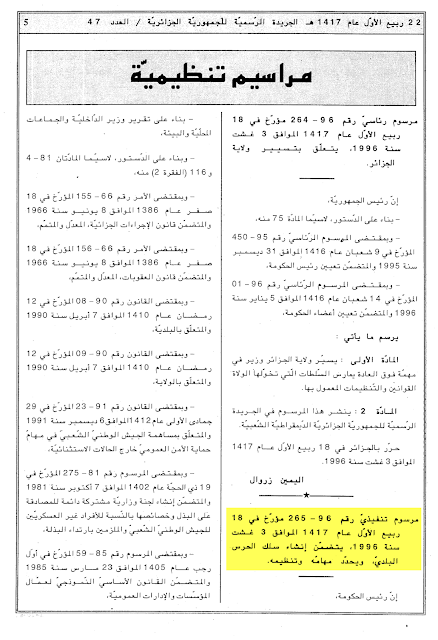 22 ربيع الأوّل عام 1417 هـ الجريدة الرّسميّة للجمهوريّة الجزائريّة / العدد 47
5
مراسيم تنظيميّة
مرسوم رئاسيّ رقم 96-264 مؤرّخ في 18
ربيع الأوّل عام 1417 الموافق 3 غشت
سنة 1996، يتعلّق بتسيير ولاية
الجزائر.
إنّ رئيس الجمهوريّة،
- بناء على الدّستور، لاسيّما المادّة 75 منه،
- وبمقتضى المرسوم الرّئاسيّ رقم 95-450
المؤرّخ في 9 شعبان عام 1416 الموافق 31 ديسمبر
سنة 1995 والمتضمّن تعيين رئيس الحكومة،
- وبمقتضى المرسوم الرّئاسيّ رقم 96-01
المؤرّخ في 14 شعبان عام 1416 الموافق 5 يناير سنة
1996 والمتضمّن تعيين أعضاء الحكومة،
يرسم ما يأتي :
المادّة الأولى : يسيّر ولاية الجزائر وزير في
مهمّة فوق العادة يمارس السلطات التي تخوّلها الولاة
القوانين والتّنظيمات المعمول بها.
المادّة 2 : ينشر هذا المرسوم في الجريدة
الرّسميّة للجمهوريّة الجزائريّة الدّيمقراطيّة الشّعبيّة.
حرّر بالجزائر في 18 ربيع الأوّل عام 1417
الموافق 3 غشت سنة 1996.
اليمين زروال
مرسوم تنفيذيّ رقم 96-265 مؤرّخ في 18
ربيع الأوّل عام 1417 الموافق 3 غشت
سنة 1996، يتضمّن إنشاء سلك الحرس
البلديّ، ويحدّد مهامّه وتنظيمه.
إنّ رئيس الحكومة،
- بناء على تقرير وزير الدّاخليّة والجماعات
المحلّيّة والبيئة،
- وبناء على الدّستور، لاسيّما المادّتان 81-4
و116 (الفقرة 2) منه،
- وبمقتضى الأمر رقم 66-155 المؤرّخ في 18
صفر عام 1386 الموافق 8 يونيو سنة 1966
والمتضمّن قانون الإجراءات الجزائيّة، المعدّل والمتمّم،
- وبمقتضى الأمر رقم 66-156 المؤرّخ في 18
صفر عام 1386 الموافق 8 يونيو سنة 1966
والمتضمّن قانون العقوبات، المعدّل والمتمّم،
- وبمقتضى القانون رقم 90-08 المؤرّخ في 12
رمضان عام 1410 الموافق 7 أبريل سنة 1990
والمتعلّق بالبلديّة،
- وبمقتضى القانون رقم 90-09 المؤرّخ في 12
رمضان عام 1410 الموافق 7 أبريل سنة 1990
والمتعلّق بالولاية،
- وبمقتضى القانون رقم 91-23 المؤرّخ في 29
جمادى الأولى عام 1412 الموافق 6 ديسمبر سنة 1991
والمتعلّق بمساهمة الجيش الوطنيّ الشّعبيّ في مهامّ
حماية الأمن العموميّ خارج الحالات الاستثنائيّة،
- وبمقتضى المرسوم رقم 81-275 المؤرّخ في
19 ذي الحجّة عام 1402 الموافق 7 أكتوبر سنة 1981
والمتضمّن إنشاء لجنة وزاريّة مشتركة دائمة للمصادقة
على البذل وخصائصها بالنسبة للأفراد غير العسكريّين
للجيش الوطنيّ الشّعبيّ والملزمين بارتداء البذلة،
- وبمقتضى المرسوم رقم 85-59 المؤرّخ في أوّل
رجب عام 1405 الموافق 23 مارس سنة 1985
والمتضمّن القانون الأساسيّ النّموذجيّ لعمّال
المؤسّسات والإدارات العموميّة،